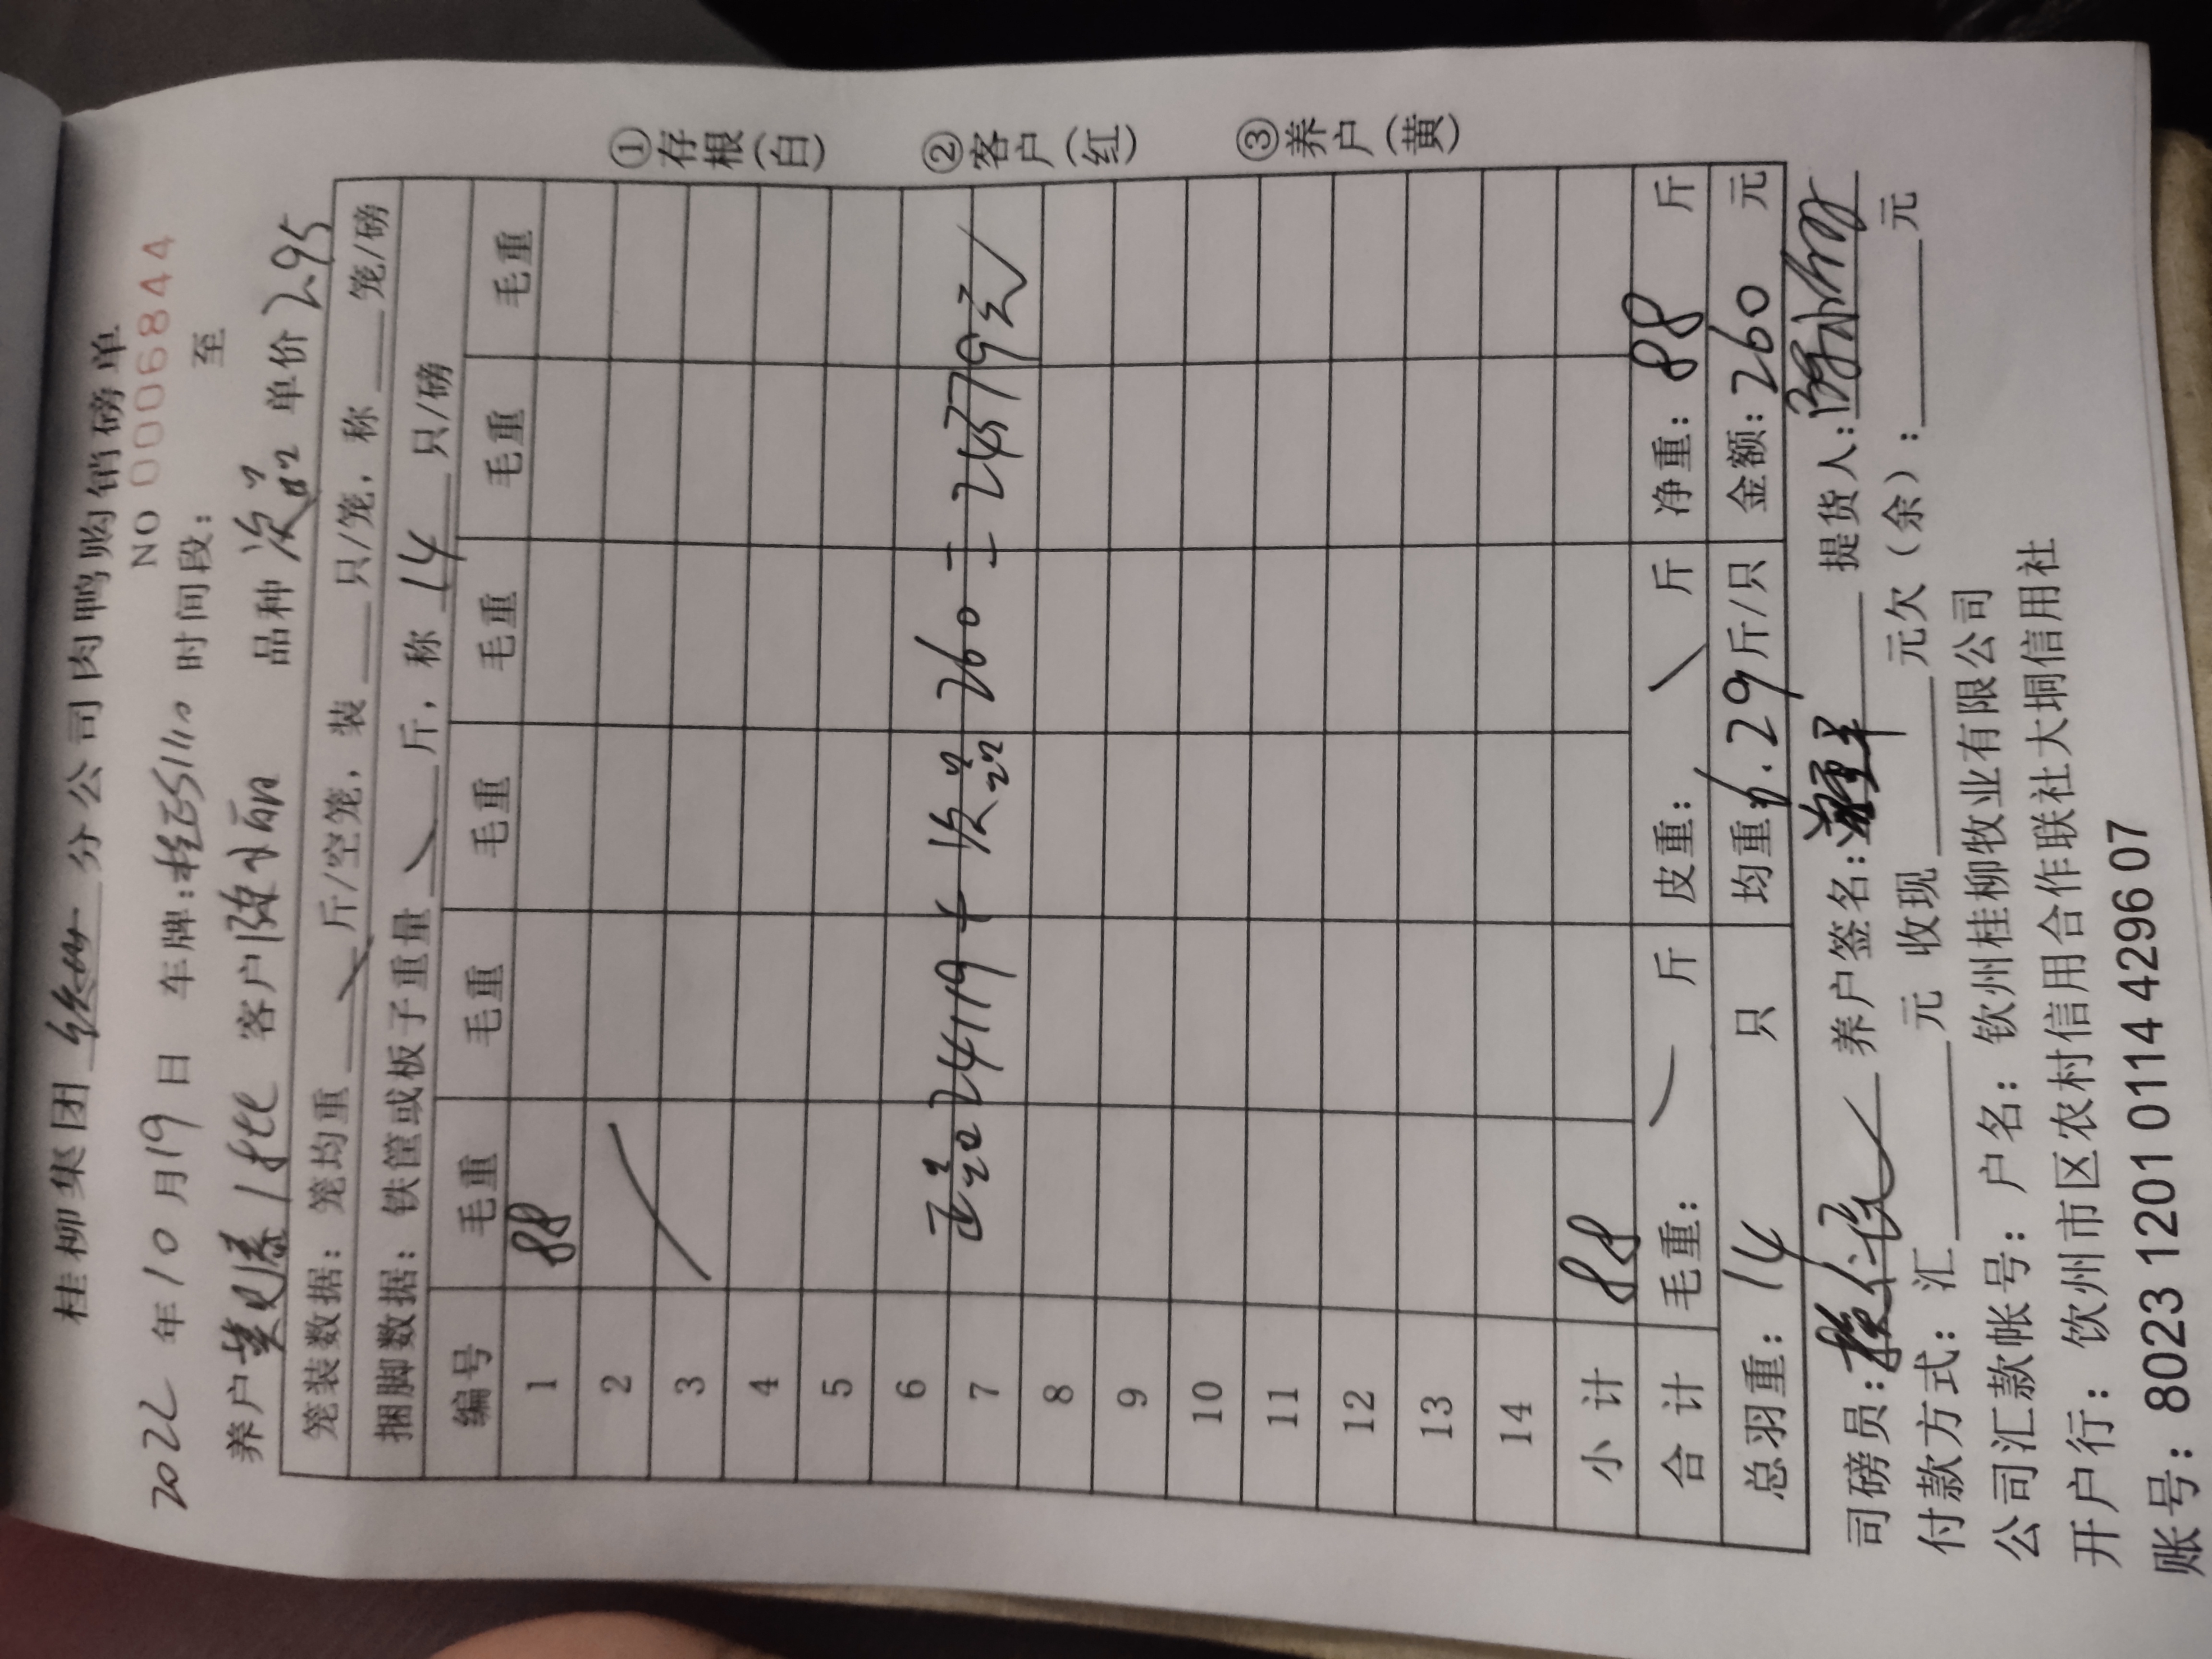 桂柳集团 分公司肉鸭购销磅单
NO 0006844
2022 年 10 月 19 日 车牌:桂E51110 时间段: 至
养户 客户 陈小丽 品种 次品 单价 2.95
笼装数据: 笼均重 斤/空笼, 装 只/笼, 称 笼/磅
捆脚数据: 铁筐或板子重量 斤, 称 14 只/磅
编号 毛重 毛重 毛重 毛重 毛重 毛重
1 88
2
3
4
5
6
7 正品24119+次品260=24379元
8
9
10
11
12
13
14
小计 88
合计 毛重: 斤 皮重: 斤 净重: 88 斤
总羽重: 14 只 均重: 6.29 斤/只 金额: 260 元
①存根(白) ②客户(红) ③养户(黄)
司磅员: 养户签名: 提货人:
付款方式: 汇 元 收现 元欠(余): 元
公司汇款帐号: 户名: 钦州桂柳牧业有限公司
开户行: 钦州市区农村信用合作联社大垌信用社
账号: 8023 1201 0114 4296 07